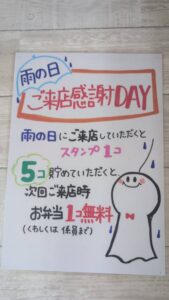 雨の日
ご来店感謝DAY
雨の日にご来店していただくと
スタンプ1コ
5コ貯めていただくと
次回ご来店時
お弁当1コ無料
(くわしくは係員まで)